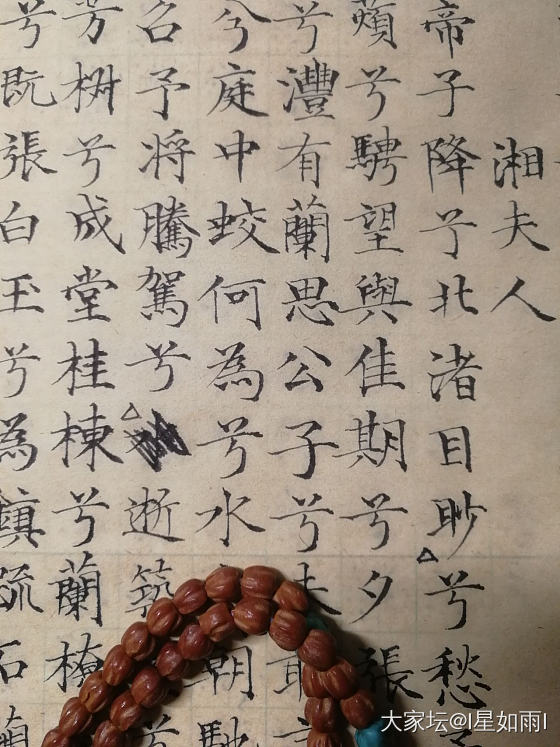 湘夫人
帝子降兮北渚目眇兮愁
蘋兮騁望與佳期兮夕張
兮灃有蘭思公子兮
兮庭中蛟何為兮水朝馳
召予将騰駕兮逝築
芳椒兮成堂桂棟兮蘭橑
兮既張白玉兮為鎮疏石蘭
大家坛@I星如雨I